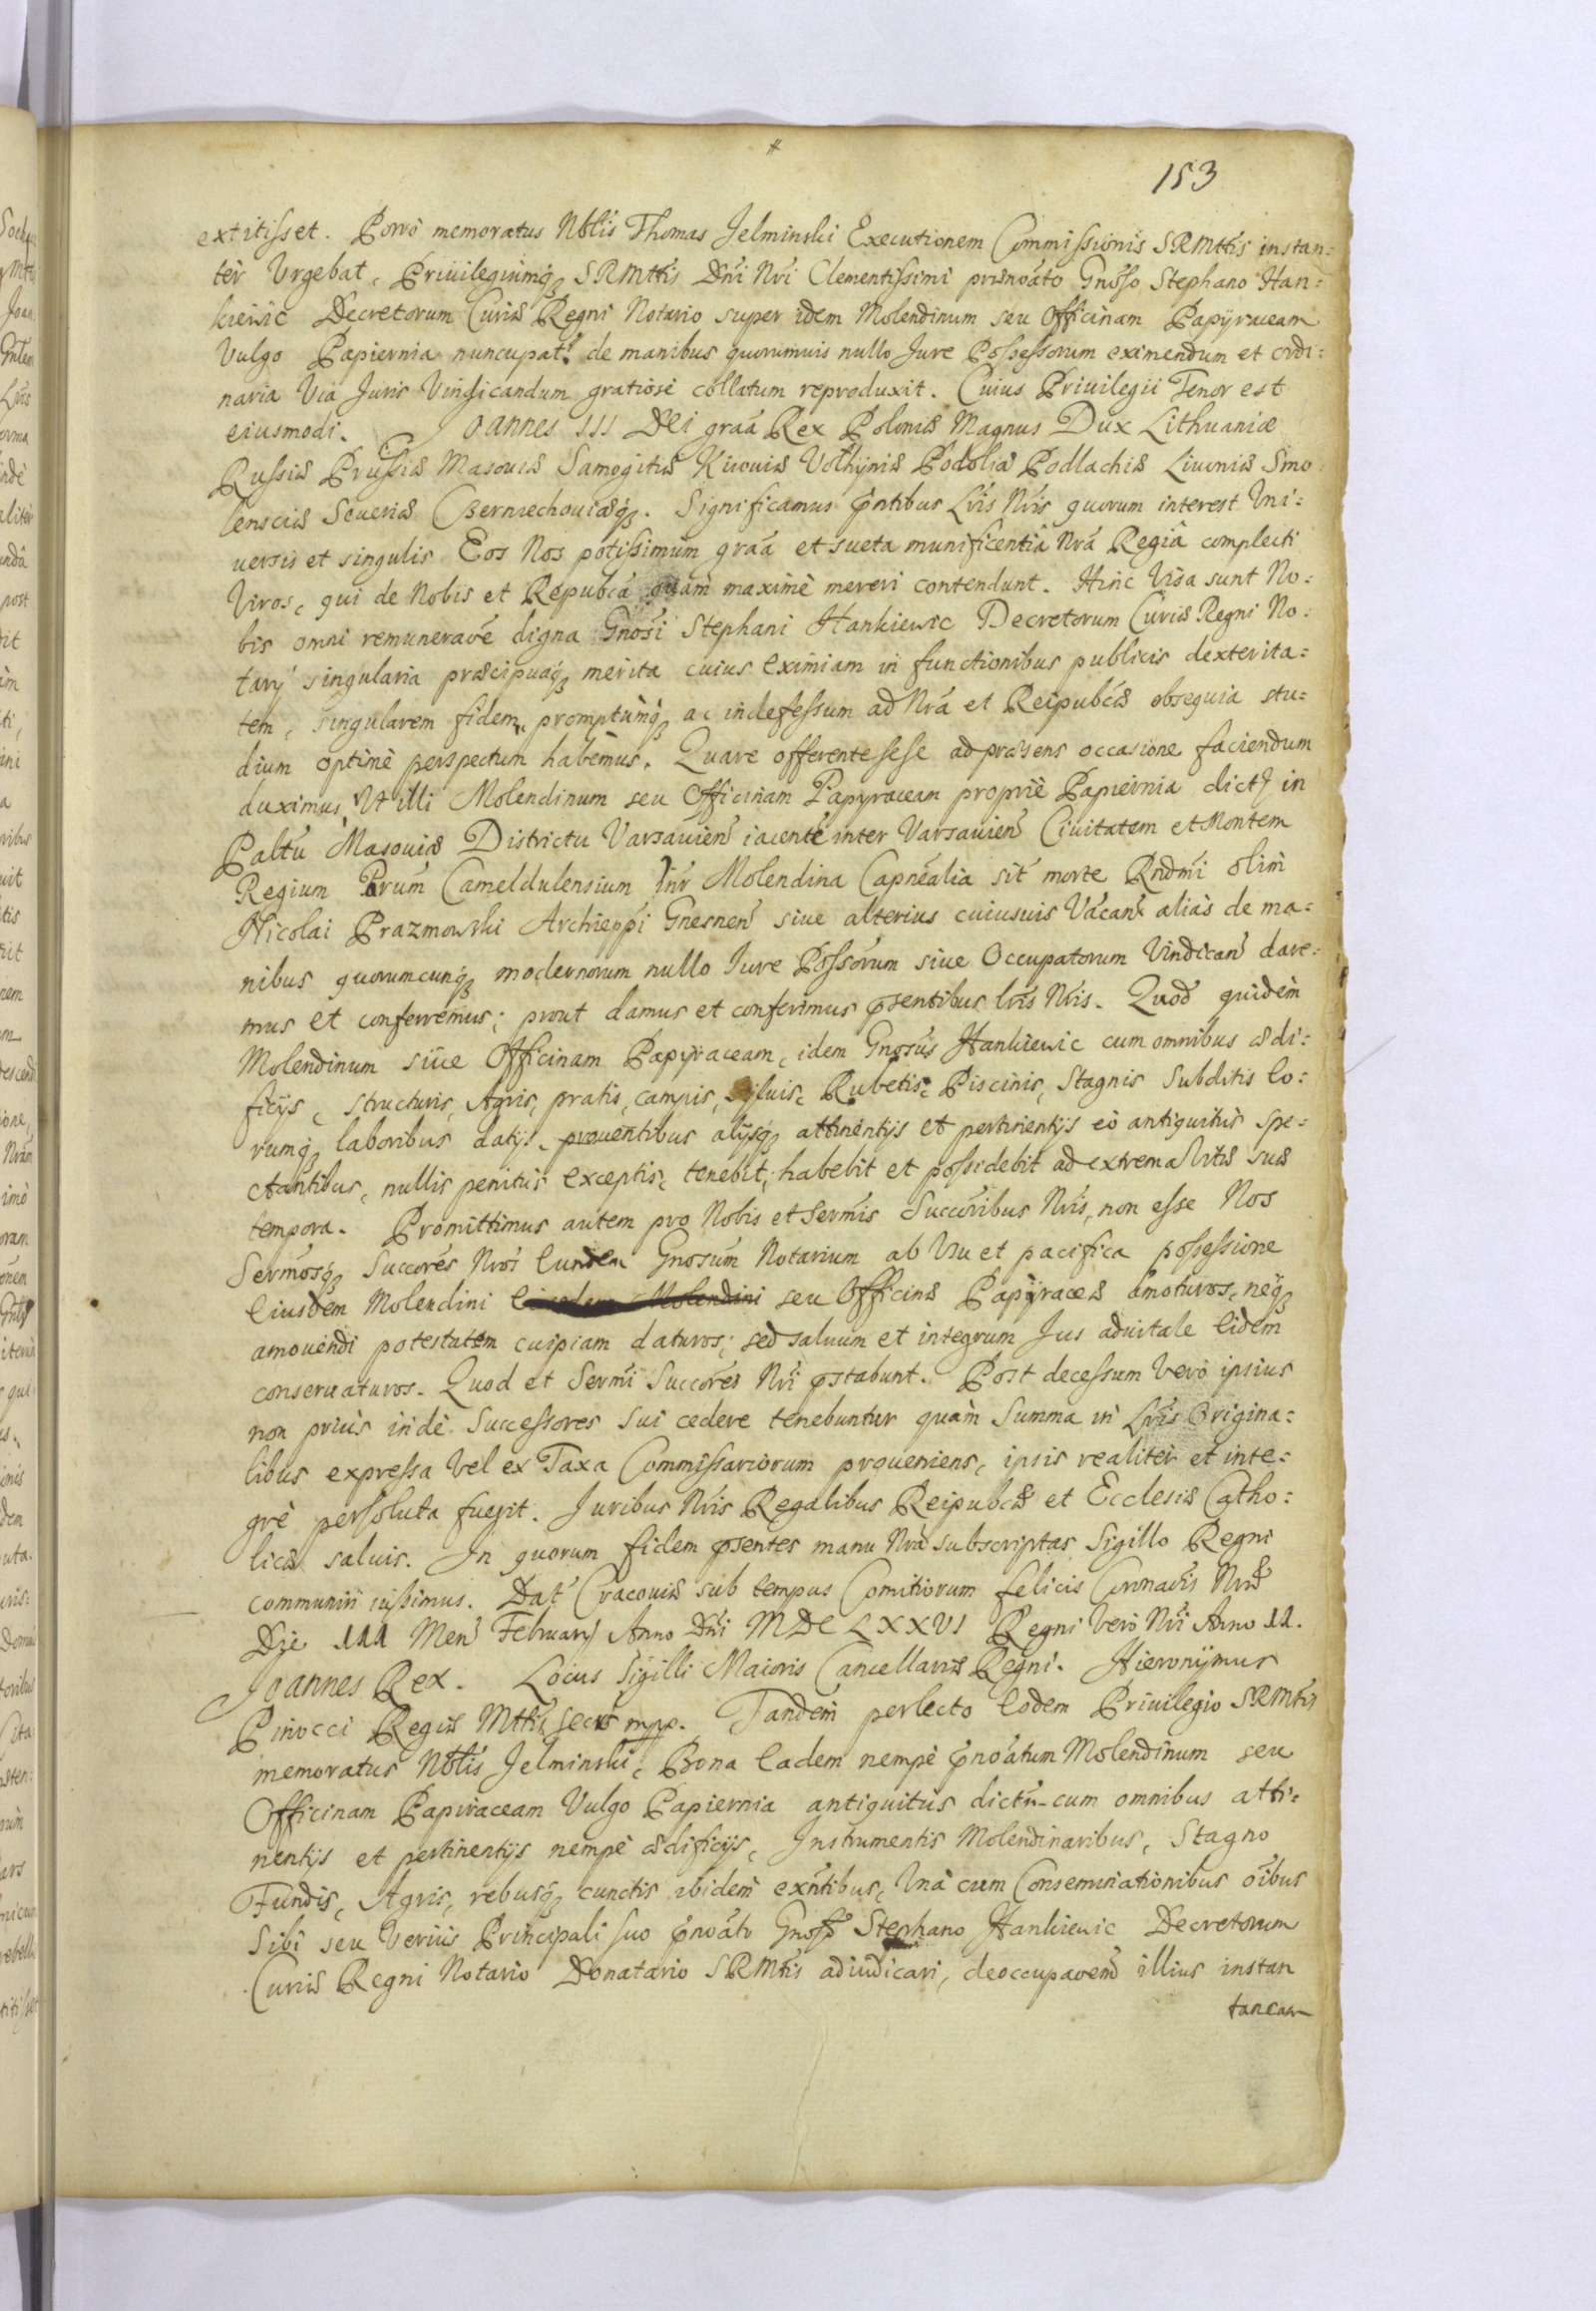 153
extitisset. Porrò memoratus Nblis Thomas Jelminski Executionem Commissionis SRMttis instan:
tèr Vrgebat, Priuilegiumq́ʒ SRMttis Dñi Nri Clementissimi prænoáto Gnoso Stephano Han:
kiewic Decretorum Curiæ Regni Notario super idem Molendinum seu Officinam Papÿraceam
Vulgo Papiernia nuncupat: de manibus quorumuis nullo Jure Possessorum eximendum et ordi:
naria Via Juris Vindicandum gratiosè collatum reproduxit. Cuius Priuilegii Tenor est
eiusmodi. Joannes III Dei graá Rex Poloniæ Magnus Dux Lithuaniæ
Russiæ Prussiæ Masouiæ Samogitiæ Kiiouiæ Volhÿniæ Podoliæ Podlachiæ Liuoniæ Smo
lensciæ Seueriæ Czerniechouiæq́ʒ. Significamus pñtibus Lris Nris quorum interest Vni:
uersis et singulis Eos Nos potissimùm graá et sueta munificentiâ Nrâ Regiâ complecti
Viros, qui de Nobis et Repubcá quàm maximè mereri contendunt. Hinc Visa sunt No:
bis omni remuneraóe digna Gnosi Stephani Hankiewic Decretorum Curiæ Regni No:
tarÿ singularia præcipuaq́ʒ merita cuius eximiam in functionibus publicis dexterita:
tem, singularem fidem, promptumq́ʒ ac indefessum ad Nrá et Reipubcæ obsequia stu:
dium optimè perspectum habemus. Quare offerente sese ad præsens occasione faciendum
duximus, Vt illi Molendinum seu Officinam Papyraceam propriè Papiernia dict in
Paltu Masouiæ Districtu Varsauien iacente inter Varsauien Ciuitatem et Montem
Regium Prum Cameldulensium Inr Molendina Capnealia sit morte Rndmi olim
Nicolai Prazmowski Archieppi Gnesnen siue alterius cuiusuis Vacan aliàs de ma:
nibus quorumcunq́ʒ modernorum nullo Jure Possorum siue Occupatorum Vindican dare:
mus et conferremus; prout damus et conferimus psentibus lris Nris. Quod quidem
Molendinum siue Officinam Papÿraceam, idem Gnosus Hankiewic cum omnibus ædi:
ficijs, structuris, Agris, pratis, campis, syluis, Rubetis, Piscinis, Stagnis Subditis eo:
rumq́ʒ laboribus datijs, prouentibus alijsq́ʒ attinentijs et pertinentijs eò antiquitùs spe:
ctantibus, nullis penitùs exceptis, tenebit, habebit et possidebit ad extrema Vitæ suæ
tempora. Promittimus autem pro Nobis et Sermis Succoribus Nris, non esse Nos
Sermosq́ʒ Succores Nros eundem Gnosum Notarium ab Vsu et pacifica possessione
eiusdem Molendini eiusdem Molendini seu Officinæ Papÿraceæ amoturos, neq́ʒ
amouendi potestatem cuipiam daturos; sed saluum et integrum Jus aduitale eidem
conseruaturos. Quod et Sermi Succores Nri pstabunt. Post decessum Verò ipsius
non priùs indè Successores Sui cedere tenebuntur quàm Summa in Lris Origina:
libus expressa Vel ex Taxa Commissariorum proueniens, ipsis realitèr et inte:
grè persoluta fuerit. Juribus Nris Regalibus Reipubcæ et Ecclesiæ Catho:
licæ saluis. In quorum fidem psentes manu Nrá subscriptas Sigillo Regni
communiri iussimus. Dat Cracouiæ sub tempus Comitiorum felicis Coronaóis Nræ
Die III Men Februarÿ Anno Dñi MDCLXXVI Regni Verò Nri Anno II.
Joannes Rex. Locus Sigilli Maioris Cancellariæ Regni. Hieronÿmus
Pinocci Regiæ Mttis Secrs mpp. Tandem perlecto eodem Priuilegio SRMttis
memoratus Nblis Jelminski, Bona eadem nempè pnoátum Molendinum seu
Officinam Papiraceam Vulgo Papiernia antiquitùs dictu cum omnibus atti:
nentijs et pertinentijs nempè ædificijs, Instrumentis Molendinaribus, Stagno
Fundis, Agris, rebusq́ʒ cunctis ibidem exntibus, Vnà cum Conseminationibus oibus
Sibi seu Veriùs Principali suo pnoáto Gnoso Stephano Hankiewic Decretorum
Curiæ Regni Notario Donatario SRMttis adiudicari, deoccupaoem illius instan
taneam